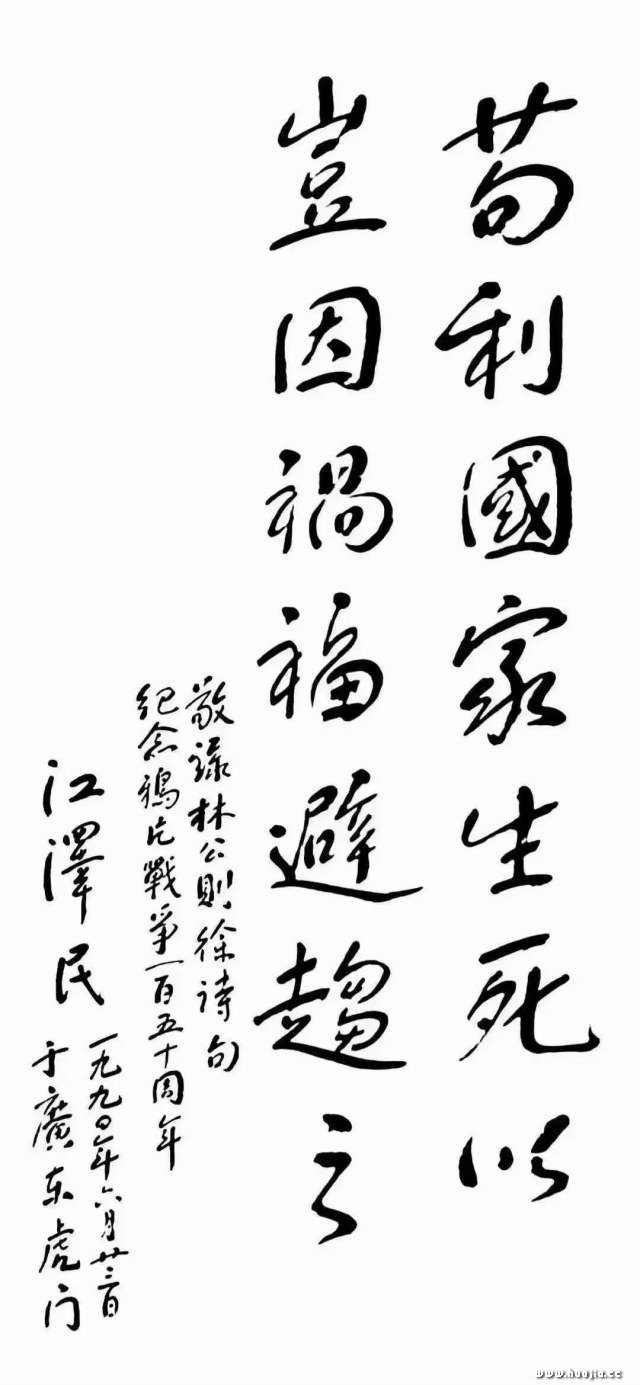 苟利國家生死以
豈因禍福避趨之
敬録林公則徐詩句
紀念鴉片戰爭一百五十周年
江澤民
一九九〇年六月廿三日
于廣东虎门
www.huajia.cc